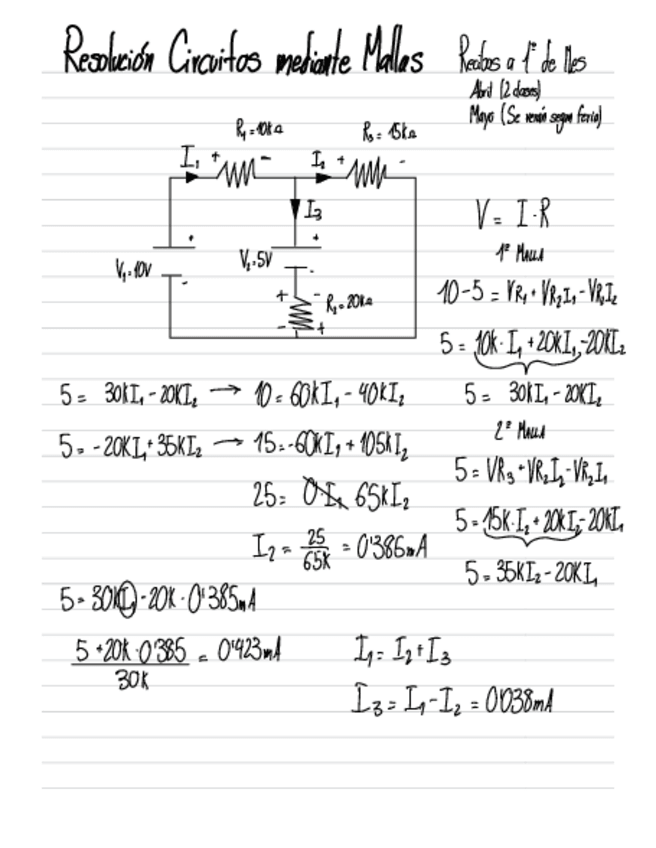 Resolución Circuitos mediante Mallas
Recibos a 1º de Mes
Abril (2 clases)
Mayo (Se verán segun feria)
R₁=10kΩ
R₃=15kΩ
I₁ + -
I₂ + -
I₃
V₁=10V
+
-
V₂=5V
+
-
+ -
R₂=20kΩ
- +
V = I·R
1ª Malla
10-5 = VR₁+VR₂I₁-VR₂I₂
5 = 10k·I₁+20kI₁-20kI₂
5 = 30kI₁-20kI₂
2ª Malla
5 = VR₃+VR₂I₂-VR₂I₁
5 = 15k·I₂+20kI₂-20kI₁
5 = 35kI₂-20kI₁
5 = 30kI₁-20kI₂ → 10 = 60kI₁-40kI₂
5 = -20kI₁+35kI₂ → 15 = -60kI₁+105kI₂
25 = 0I₁ 65kI₂
I₂ = 25/65k = 0'386mA
5 = 30kI₁-20k·0'385mA
5+20k·0'385/30k = 0'423mA
I₁ = I₂+I₃
I₃ = I₁-I₂ = 0'038mA